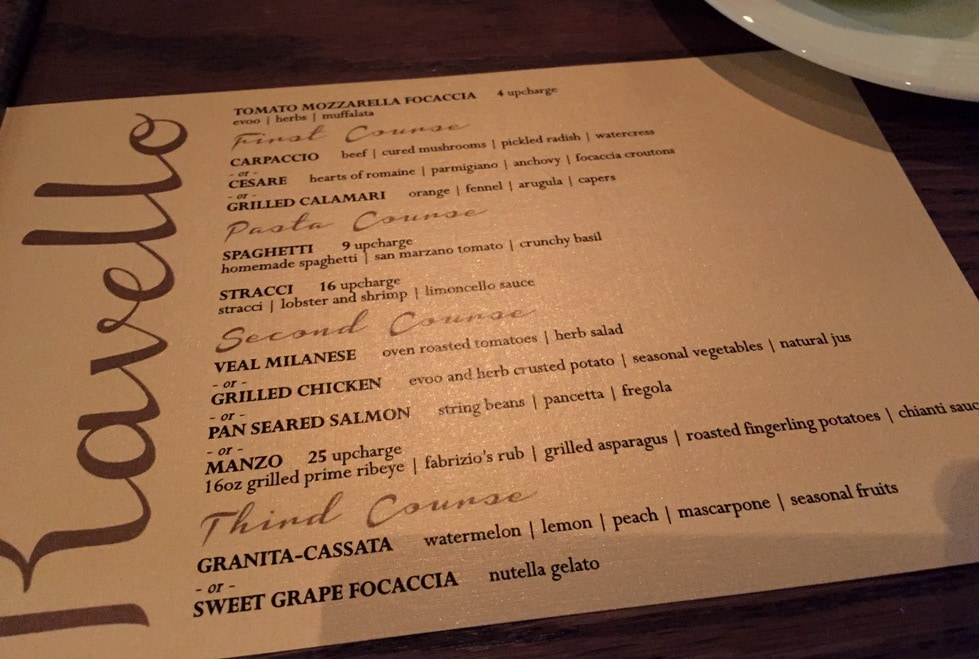 Ravello
TOMATO MOZZARELLA FOCACCIA 4 upcharge
evoo | herbs | muffalata
First Course
CARPACCIO beef | cured mushrooms | pickled radish | watercress
- or -
CESARE hearts of romaine | parmigiano | anchovy | focaccia croutons
- or -
GRILLED CALAMARI orange | fennel | arugula | capers
Pasta Course
SPAGHETTI 9 upcharge
homemade spaghetti | san marzano tomato | crunchy basil
STRACCI 16 upcharge
stracci | lobster and shrimp | limoncello sauce
Second Course
VEAL MILANESE oven roasted tomatoes | herb salad
- or -
GRILLED CHICKEN evoo and herb crusted potato | seasonal vegetables | natural jus
- or -
PAN SEARED SALMON string beans | pancetta | fregola
- or -
MANZO 25 upcharge
16oz grilled prime ribeye | fabrizio's rub | grilled asparagus | roasted fingerling potatoes | chianti sauc
Third Course
GRANITA-CASSATA watermelon | lemon | peach | mascarpone | seasonal fruits
- or -
SWEET GRAPE FOCACCIA nutella gelato